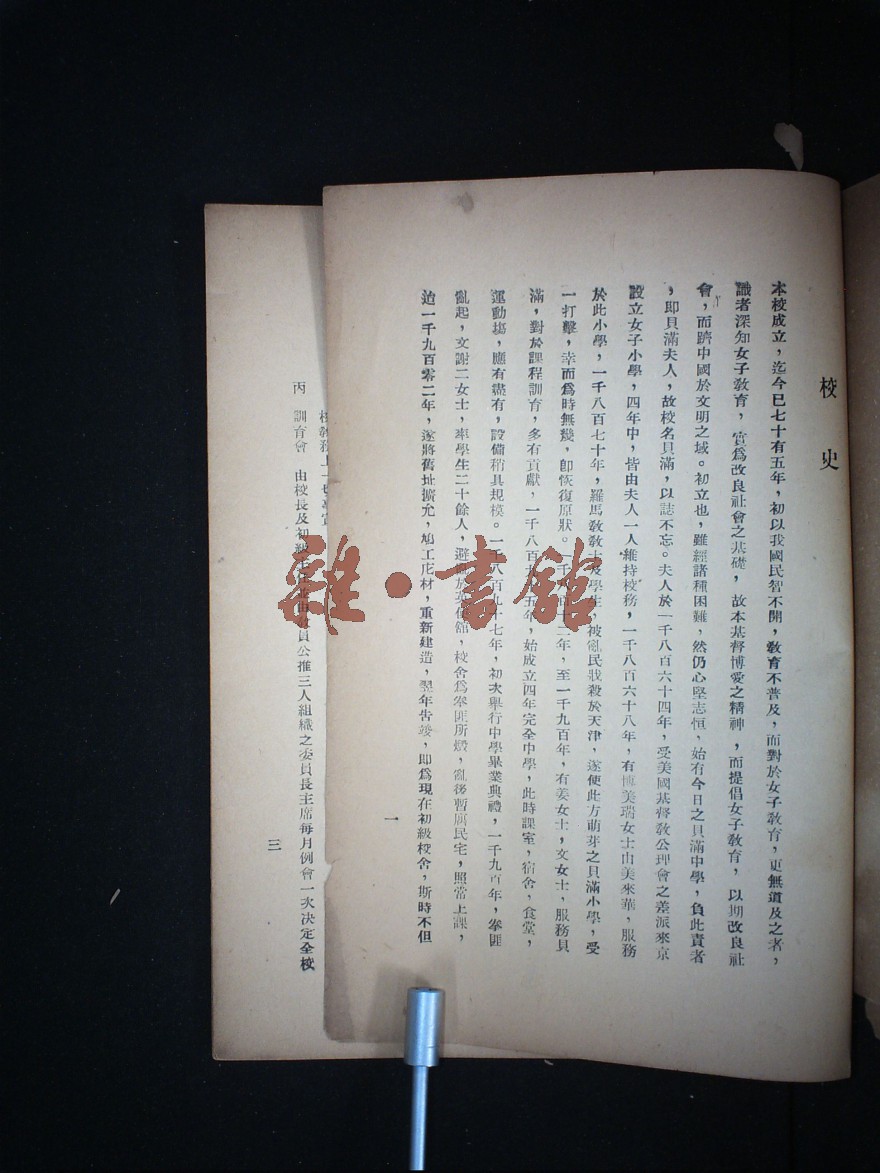 校史
本校成立，迄今已七十有五年，初以我國民智不開，教育不普及，而對於女子教育，更無道及之者，
識者深知女子教育，實爲改良社會之基礎，故本基督博愛之精神，而提倡女子教育，以期改良社
會，而躋中國於文明之域。初立也，雖經諸種困難，然仍心堅志恒，始有今日之貝滿中學，負此責者
，即貝滿夫人，故校名貝滿，以誌不忘。夫人於一千八百六十四年，受美國基督教公理會之差派來京
設立女子小學，四年中，皆由夫人一人維持校務，一千八百六十八年，有博美瑞女士由美來華，服務
於此小學，一千八百七十年，羅馬教教士及學生，被亂民戕殺於天津，遂使此方萌芽之貝滿小學，受
一打擊，幸而爲時無幾，卽恢復原狀。一千八百十二年，至一千九百年，有姜女士，文女士，服務貝
滿，對於課程訓育，多有貢獻，一千八百九十五年，始成立四年完全中學，此時課室，宿舍，食堂，
運動塲，應有盡有，設備稍具規模。一千八百九十七年，初次舉行中學畢業典禮，一千九百年，拳匪
亂起，文謝二女士，率學生二十餘人，避於館，校舍爲拳匪所燬，亂後暫寓民宅，照常上課，
迨一千九百零二年，遂將舊址擴充，鳩工庀材，重新建造，翌年告竣，即爲現在初級校舍，斯時不但
一
校務上一切事宜
丙 訓育會 由校長及初級主任並由教員公推三人組織之委員長主席每月例會一次決定全校
三
雜·書館